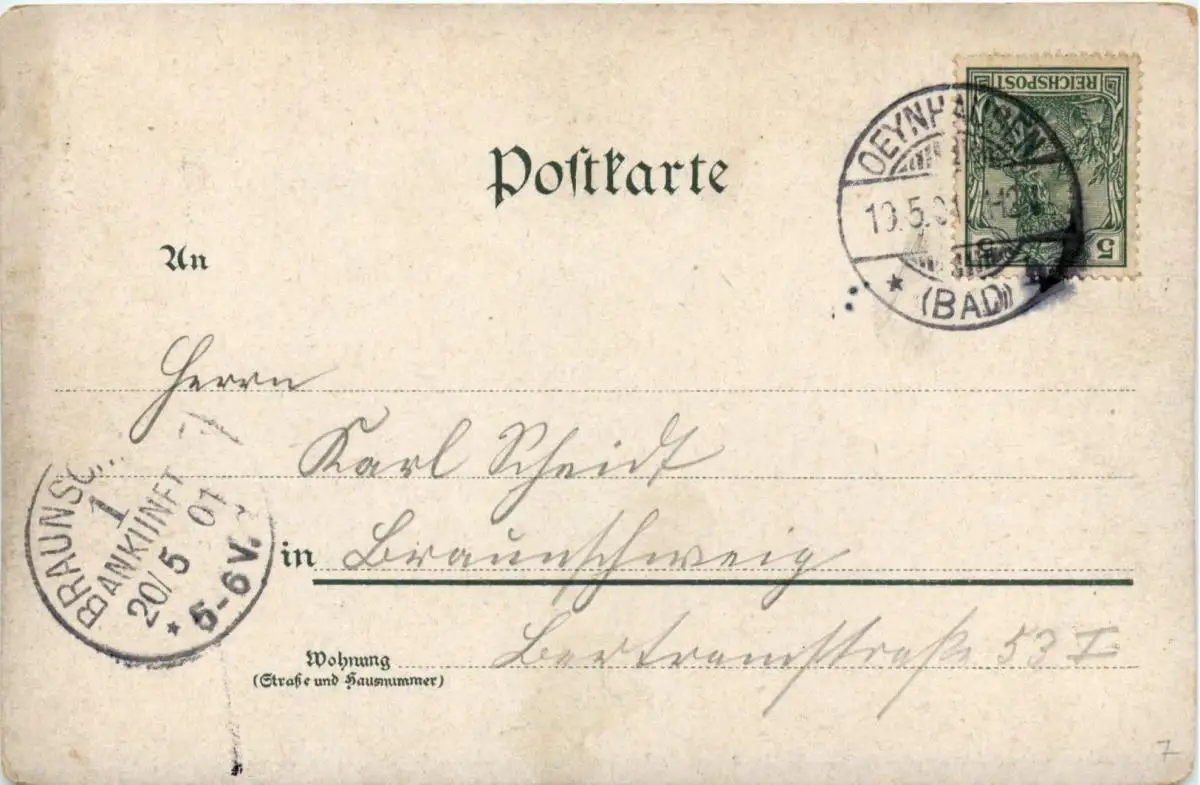 REICHSPOST
5 5
Postkarte
OEYNHAUSEN
19.5.01
(BAD)
An
Herrn
Karl Scheidt
in Braunschweig
Wohnung
(Straße und Hausnummer)
Bertramstraße 53 I
BRAUNSCH
1
BANKUNFT
20/5 01
* 5-6V.
7